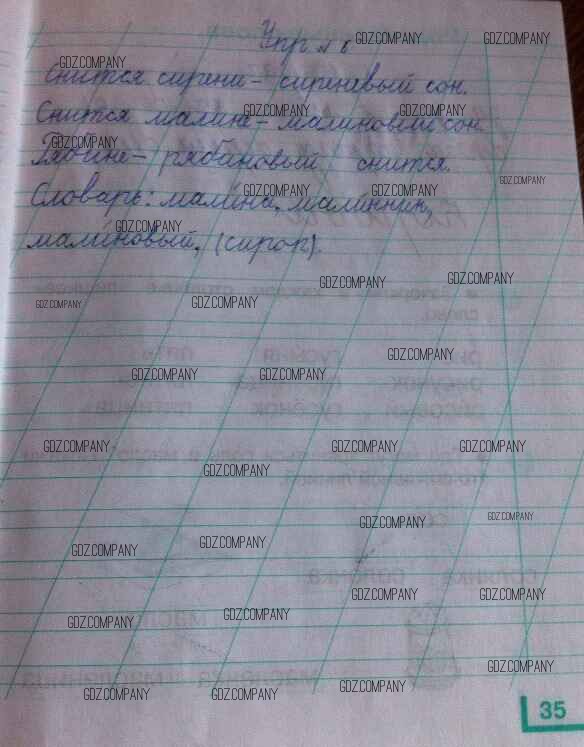 Упр. № 6
Снится сирени - сиреневый сон.
Снится малине - малиновый сон.
Рябине - рябиновый снится.
Словарь: малина, малинник,
малиновый, (сироп).
35